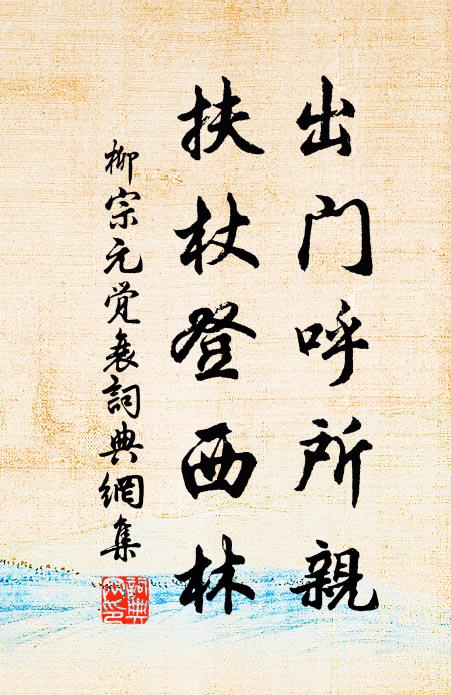 出门呼所親
扶杖登西林
柳宗元觉衰詞典網集
詞典